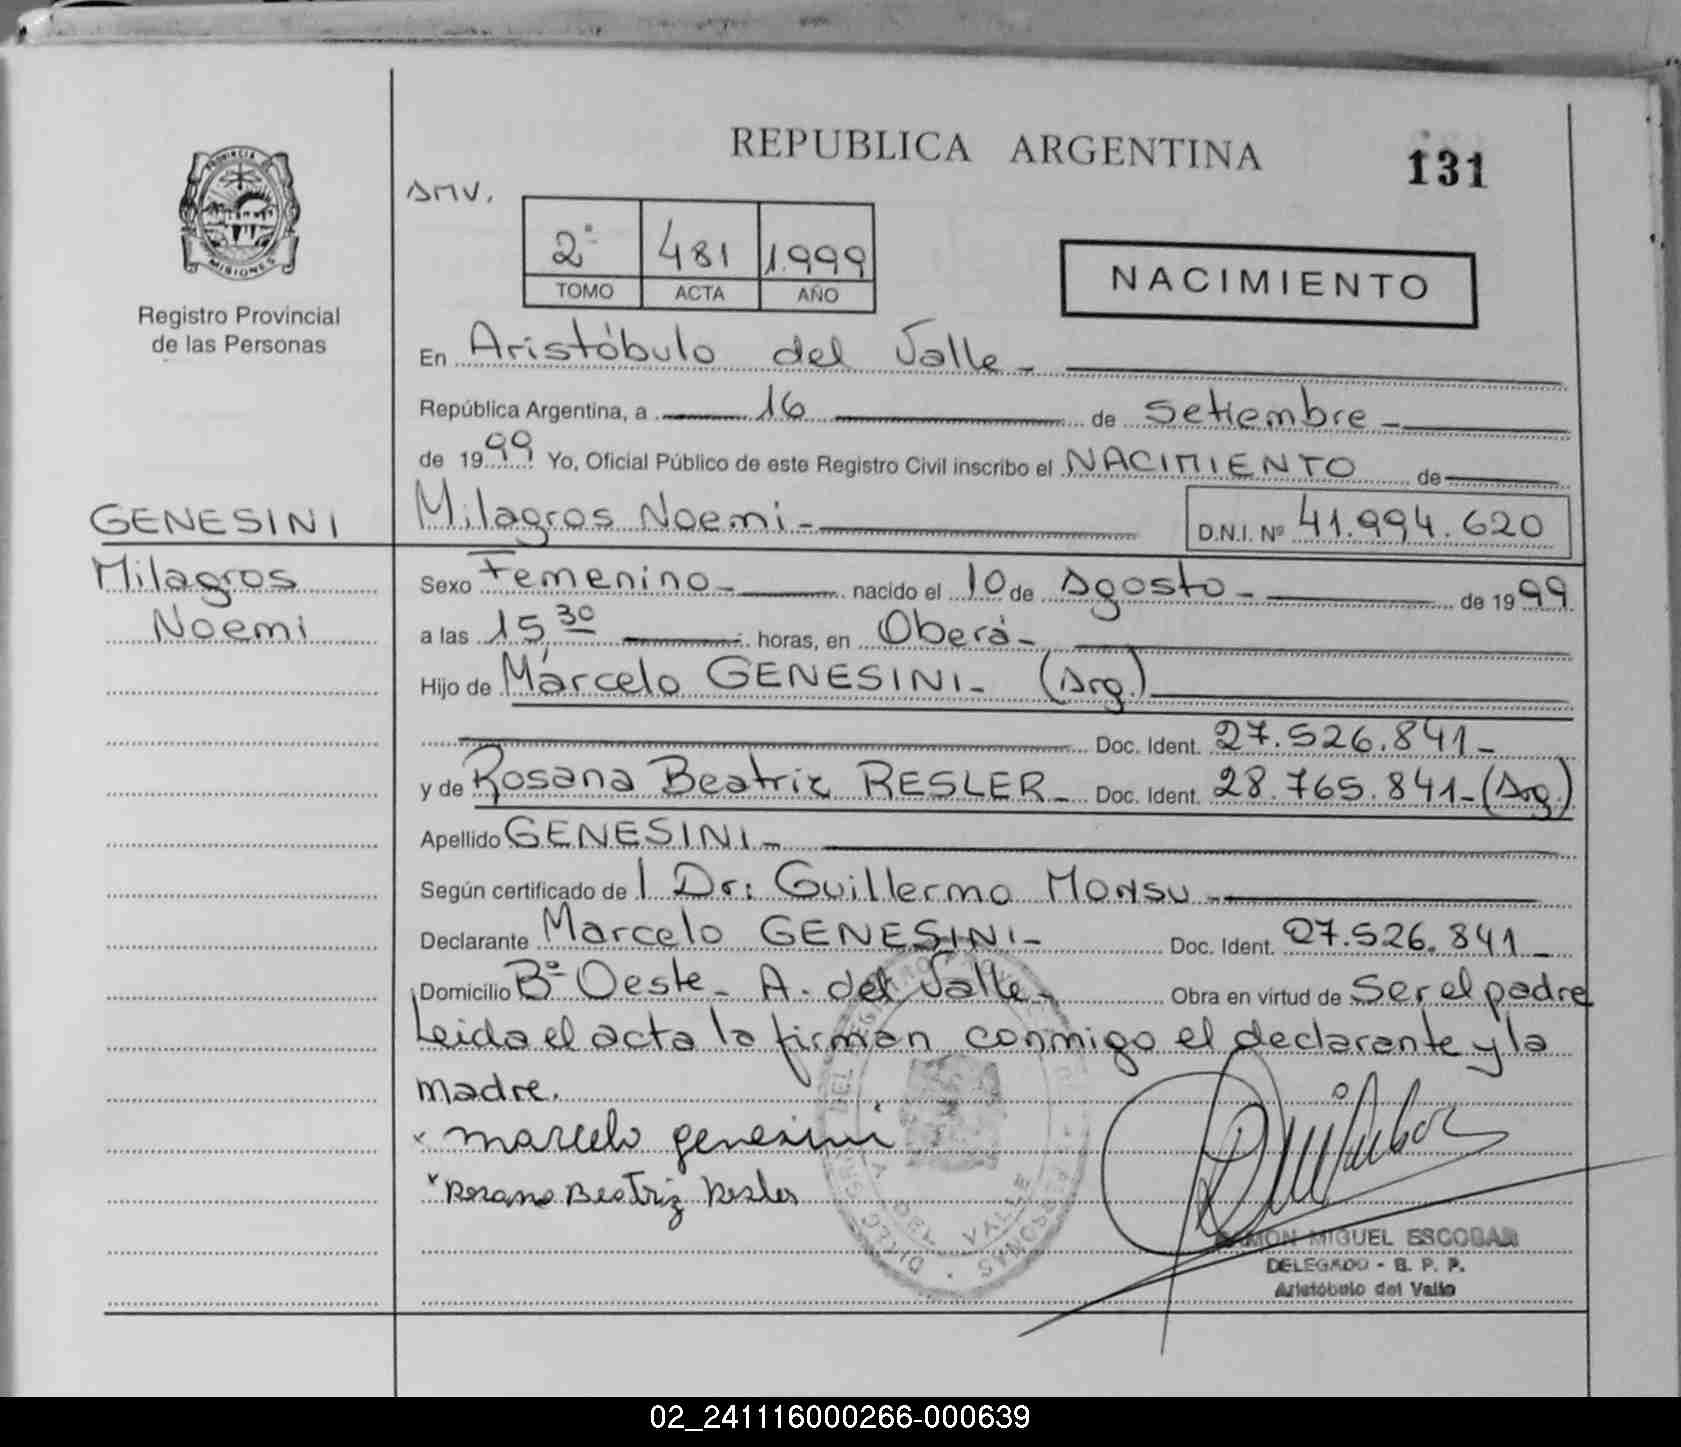 REPUBLICA ARGENTINA
131
PROVINCIA
MISIONES
Registro Provincial
de las Personas
AMV.
2º 481 1.999
TOMO ACTA AÑO
NACIMIENTO
En Aristóbulo del Valle -
República Argentina, a 16 de Setiembre -
de 1999 Yo, Oficial Público de este Registro Civil inscribo el NACIMIENTO de
GENESINI
Milagros Noemi -
D.N.I. Nº 41.994.620
Milagros
Noemi
Sexo Femenino - nacido el 10 de Agosto - de 1999
a las 15,30 horas, en Oberá -
Hijo de Marcelo GENESINI - (Arg.)
Doc. Ident. 27.526.841 -
y de Rosana Beatriz RESLER - Doc. Ident. 28.765.841 - (Arg.)
Apellido GENESINI -
Según certificado de l Dr: Guillermo Monsu -
Declarante Marcelo GENESINI - Doc. Ident. 27.526.841 -
Domicilio Bº Oeste - A. del Valle - Obra en virtud de Ser el padre
Leida el acta la firman conmigo el declarante y la
madre.
x marcelo genesini
x Rosana Beatriz Resler
RAMON MIGUEL ESCOBAR
DELEGADO - R. P. P.
Aristóbulo del Valle
02_241116000266-000639